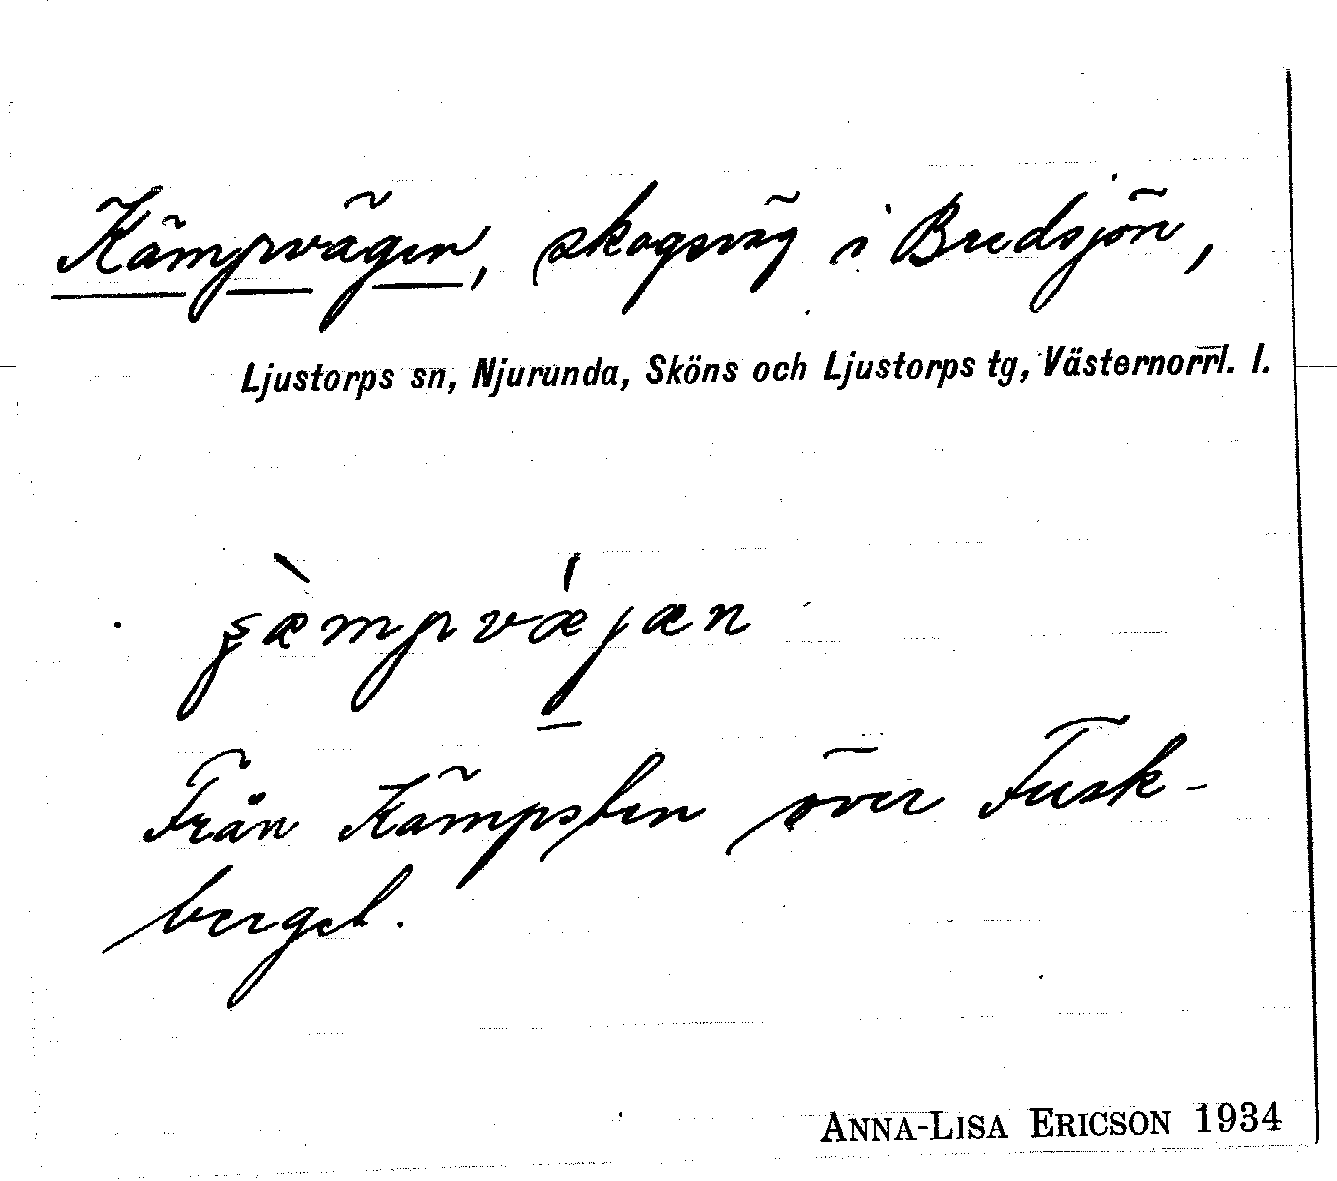 Kämpvägen, skogsväg i Bredsjön,
Ljustorps sn, Njurunda, Sköns och Ljustorps tg, Västernorrl. l.
şæ̀mpvǽjæn
Från Kämpsten över Fusk-
berget.
ANNA-LISA ERICSON 1934